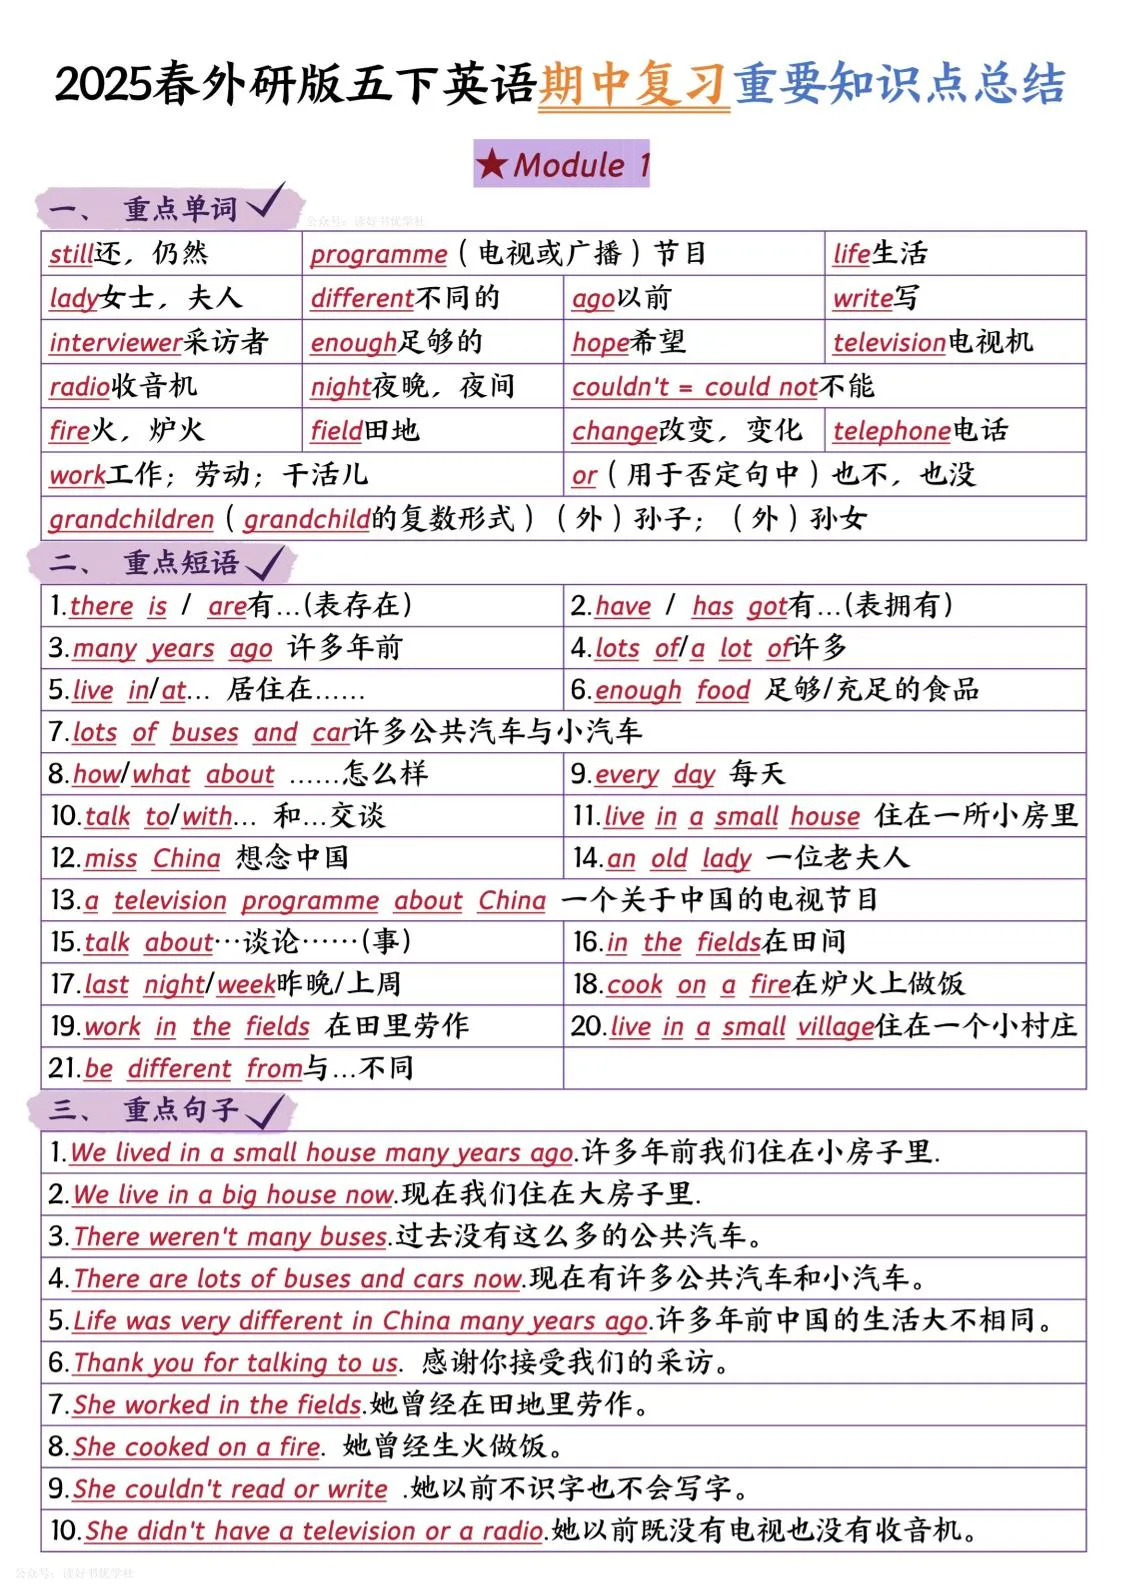 2025春外研版五下英语期中复习重要知识点总结
★Module 1
一、 重点单词
公众号：读好书优学社
still还，仍然 programme（电视或广播）节目 life生活
lady女士，夫人 different不同的 ago以前 write写
interviewer采访者 enough足够的 hope希望 television电视机
radio收音机 night夜晚，夜间 couldn't = could not不能
fire火，炉火 field田地 change改变，变化 telephone电话
work工作；劳动；干活儿 or（用于否定句中）也不，也没
grandchildren（grandchild的复数形式）（外）孙子；（外）孙女
二、 重点短语
1.there is / are有…(表存在) 2.have / has got有…(表拥有)
3.many years ago 许多年前 4.lots of/a lot of许多
5.live in/at… 居住在…… 6.enough food 足够/充足的食品
7.lots of buses and car许多公共汽车与小汽车
8.how/what about ……怎么样 9.every day 每天
10.talk to/with… 和…交谈 11.live in a small house 住在一所小房里
12.miss China 想念中国 14.an old lady 一位老夫人
13.a television programme about China 一个关于中国的电视节目
15.talk about…谈论……(事) 16.in the fields在田间
17.last night/week昨晚/上周 18.cook on a fire在炉火上做饭
19.work in the fields 在田里劳作 20.live in a small village住在一个小村庄
21.be different from与…不同
三、 重点句子
1.We lived in a small house many years ago.许多年前我们住在小房子里.
2.We live in a big house now.现在我们住在大房子里.
3.There weren't many buses.过去没有这么多的公共汽车。
4.There are lots of buses and cars now.现在有许多公共汽车和小汽车。
5.Life was very different in China many years ago.许多年前中国的生活大不相同。
6.Thank you for talking to us. 感谢你接受我们的采访。
7.She worked in the fields.她曾经在田地里劳作。
8.She cooked on a fire. 她曾经生火做饭。
9.She couldn't read or write .她以前不识字也不会写字。
10.She didn't have a television or a radio.她以前既没有电视也没有收音机。
公众号：读好书优学社